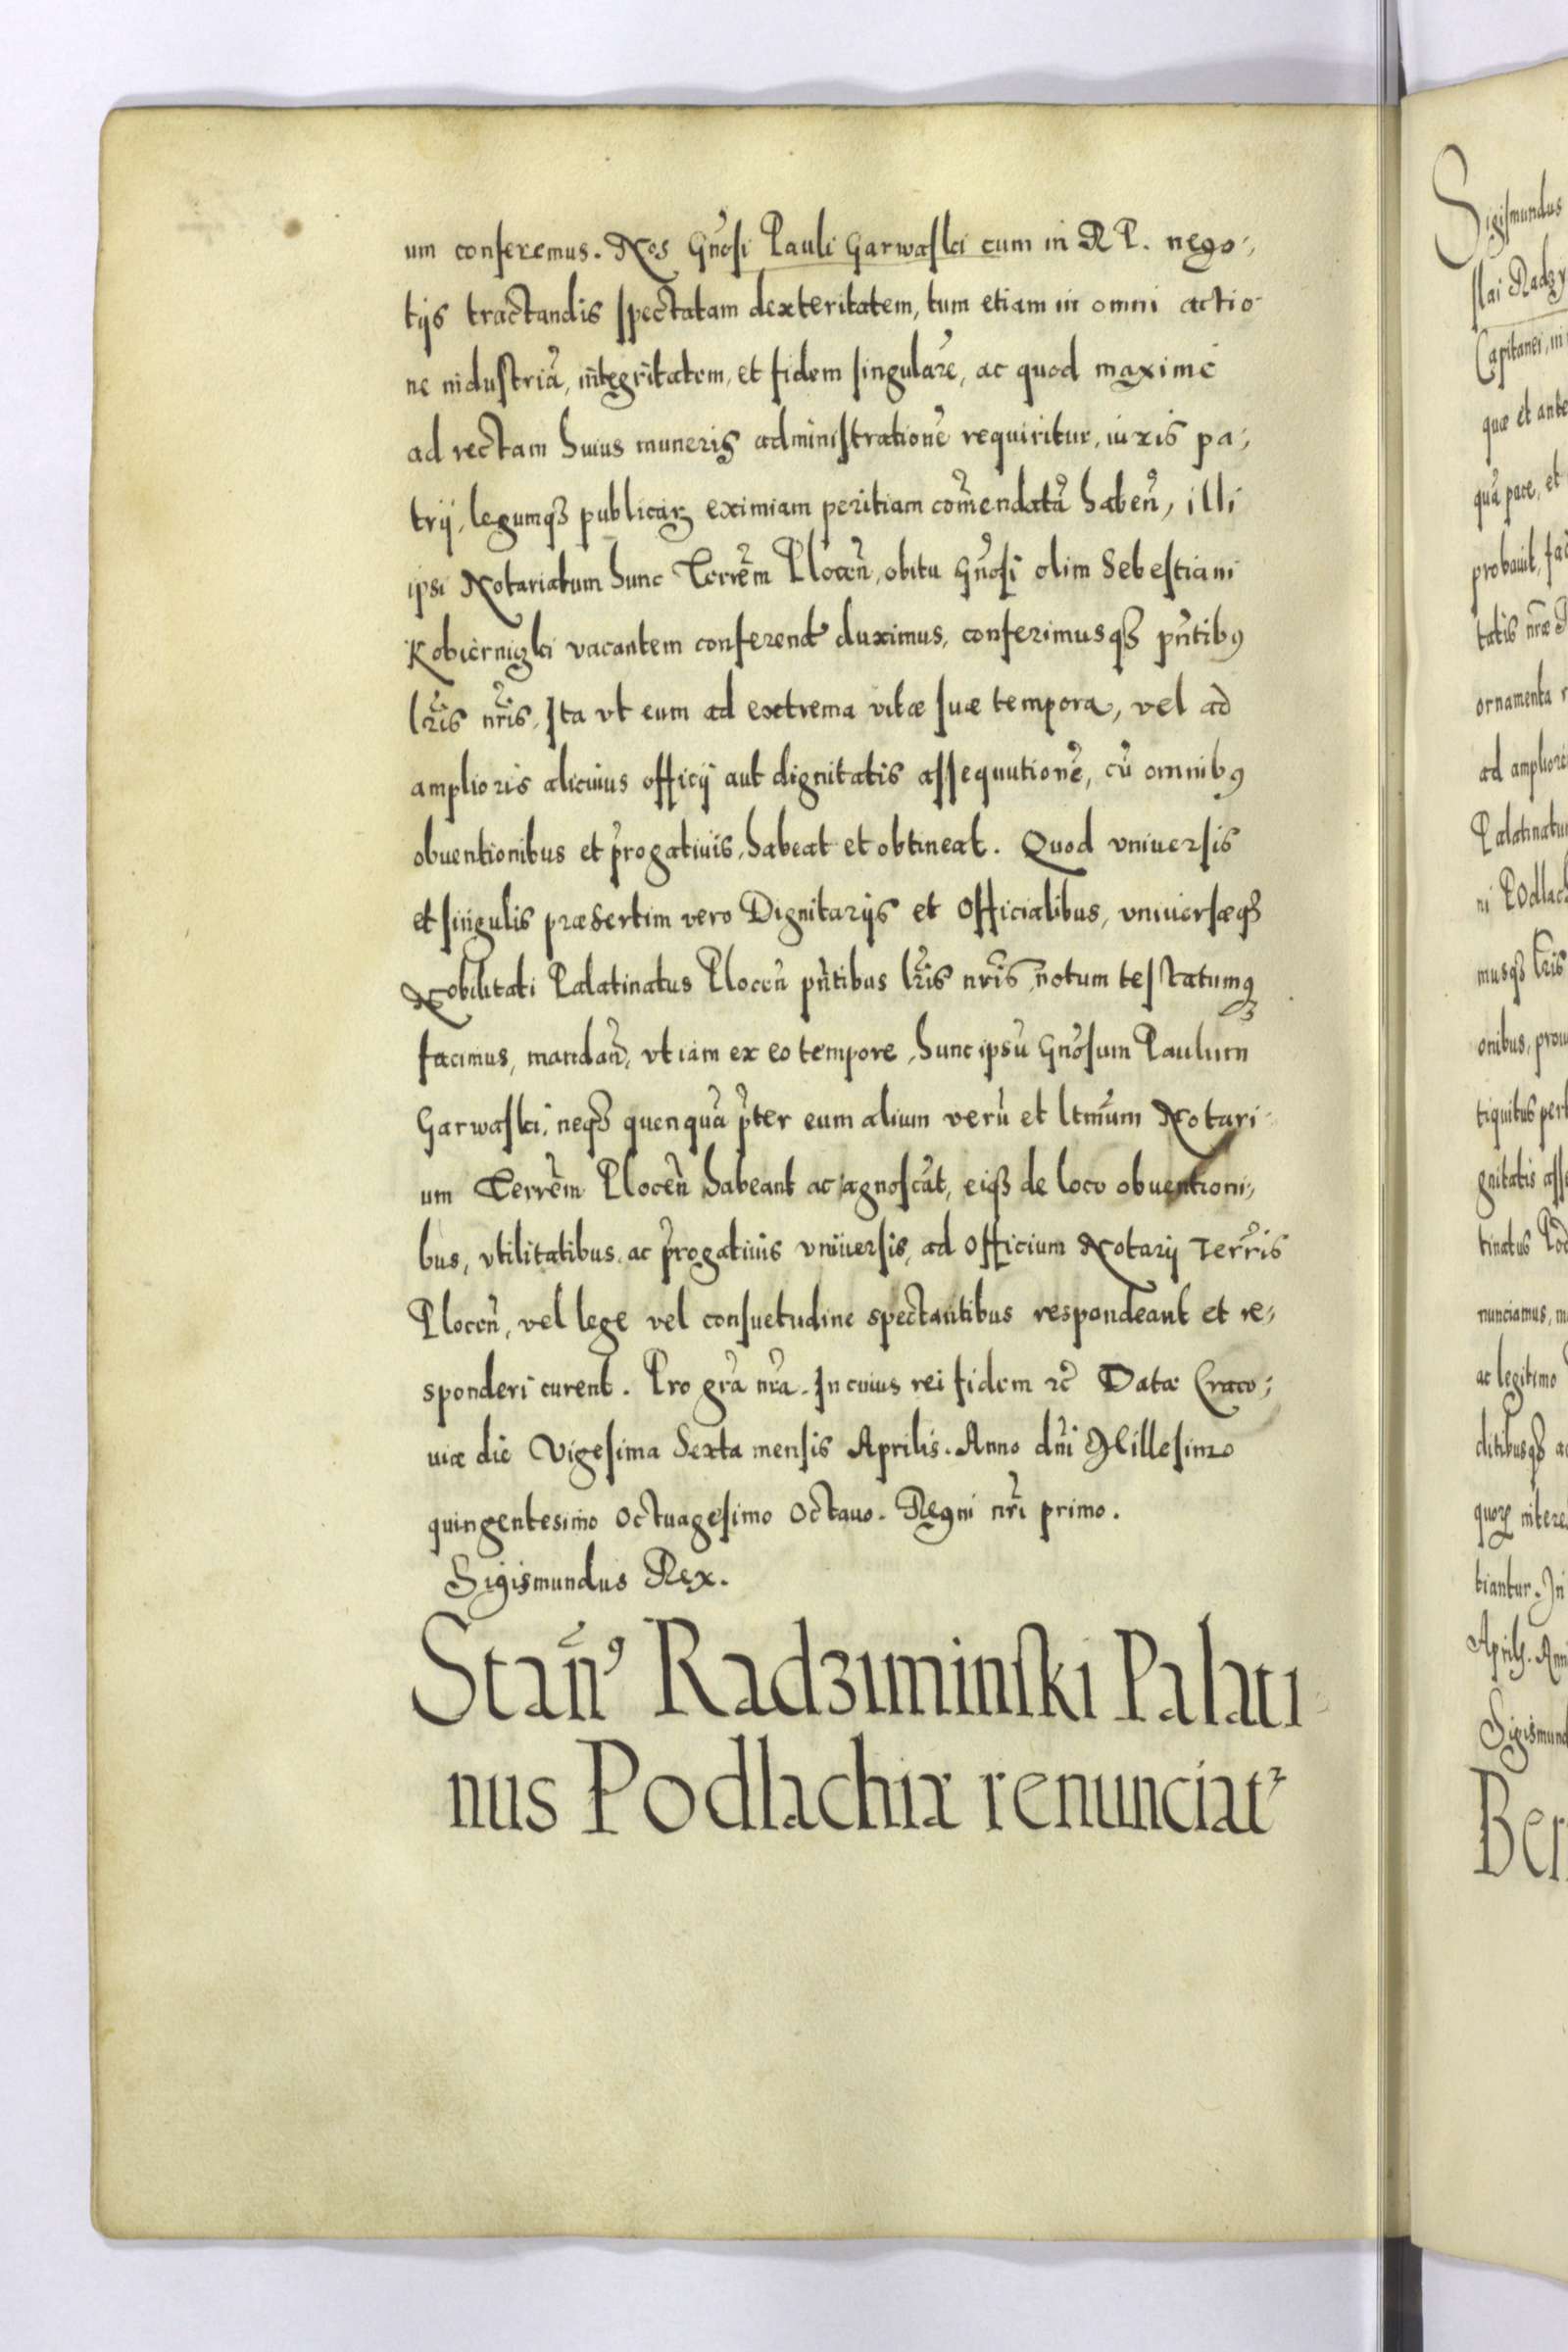 um conferemus. Nos Gn̄osi Pauli Garwaski cum in R P. nego-
tijs tractandis spectatam dexteritatem, tum etiam in omni actio-
ne industriā, integritatem, et fidem singularē, ac quod maxime
ad rectam huius muneris administrationē requiritur, iuris pa-
trij, legumqꝫ publicaꝝ eximiam peritiam com̄endatā haben̄, illi
ipsi Notariatum hunc Terrēm Plocen̄, obitu Gn̄osi olim Sebestiani
Kobiernizki vacantem conferend duximus, conferimusqꝫ pn̄tibꝰ
lr̄is nr̄is, Ita vt eum ad extrema vitæ suæ tempora, vel ad
amplioris alicuius officij aut dignitatis assequutionē, cū omnibꝰ
obuentionibus et p̄rogatiuis, habeat et obtineat. Quod vniuersis
et singulis præsertim vero Dignitarijs et Officialibus, vniuersæqꝫ
Nobilitati Palatinatus Plocen̄ pn̄tibus lr̄is nr̄is notum testatumqꝫ
facimus, mandan̄, vt iam ex eo tempore, hunc ipsū Gn̄osum Paulum
Garwaski, neqꝫ quenquā p̄ter eum alium verū et ltm̄um Notari-
um Terrēm Plocen̄ habeant ac agnoscāt, eiqꝫ de loco obuentioni-
bus, vtilitatibus, ac p̄rogatiuis vniuersis, ad Officium Notarij Terr̄is
Plocen̄, vel lege vel consuetudine spectantibus respondeant et re-
sponderi curent. Pro gr̄a nr̄a. In cuius rei fidem ꝛc̄ Datæ Craco-
uiæ die Vigesima Sexta mensis Aprilis. Anno dn̄i Millesimo
quingentesimo Octuagesimo Octauo. Regni nr̄i primo.
Sigismundus Rex.
Stan̄ꝰ Radziminski Palati-
nus Podlachiæ renunciatꝛ
Sigismundus
slai Radzy
Capitanei, in
quæ et ante
quā pace, et
probauit, fac
tatis nr̄æ
ornamenta
ad ampliore
Palatinatu
ni Podlach
musqꝫ lr̄is
onibus, prou
tiquitus per
gnitatis ass
tinatus Pod
nunciamus, m
ac legitimo
ditibusqꝫ a
quoꝝ intere
tiantur. In
Aprils. Ann
Sigismund
Ber